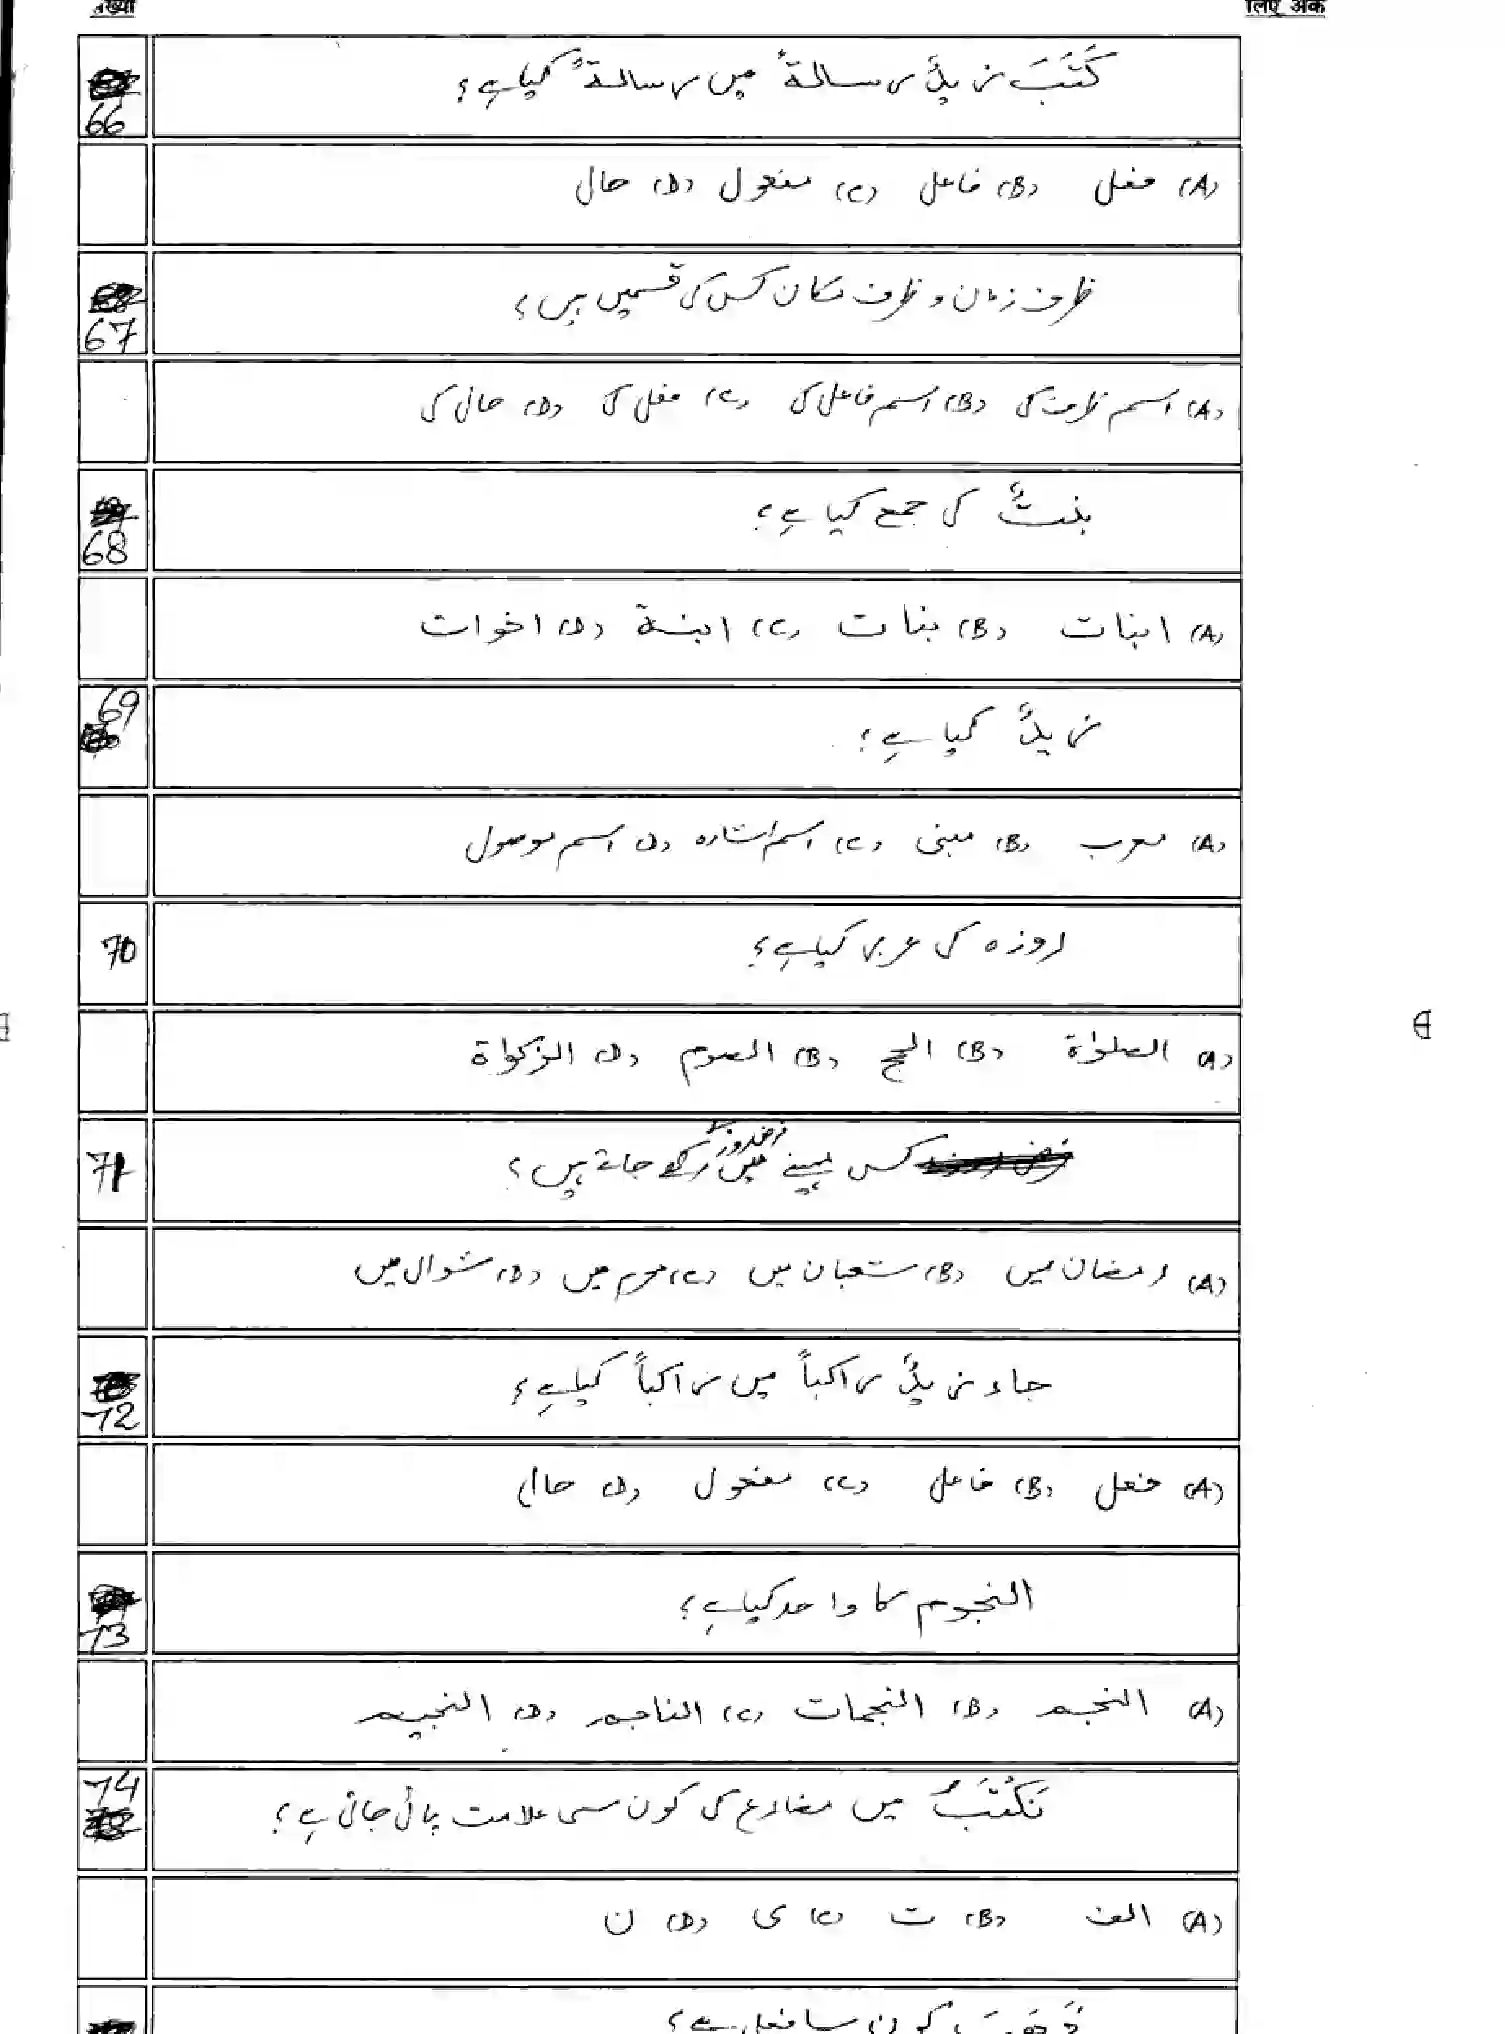 लिए अंक
66 کَتَبَ زیدٌ رسالۃً میں رسالۃً کیا ہے؟
(A) فعل (B) فاعل (C) مفعول (D) حال
67 ظرف زمان و ظرف مکان کس کی قسمیں ہیں؟
(A) اسم ظرف کی (B) اسم فاعل کی (C) فعل کی (D) حال کی
68 بنتٌ کی جمع کیا ہے؟
(A) ابنات (B) بنات (C) ابنۃ (D) اخوات
69 زیدٌ کیا ہے؟
(A) معرب (B) مبنی (C) اسم اشارہ (D) اسم موصول
70 روزہ کی عربی کیا ہے؟
(A) الصلوٰۃ (B) الحج (B) الصوم (D) الزکوٰۃ
71 کس مہینے میں فرض روزے رکھے جاتے ہیں؟
(A) رمضان میں (B) شعبان میں (C) محرم میں (D) شوال میں
72 جاء زیدٌ راکباً میں راکباً کیا ہے؟
(A) فعل (B) فاعل (C) مفعول (D) حال
73 النجوم کا واحد کیا ہے؟
(A) النجم (B) النجمات (C) الناجم (D) النجیم
74 نَکْتُبُ میں مضارع کی کون سی علامت پائی جاتی ہے؟
(A) الف (B) ت (C) ی (D) ن
کون سا فعل ہے؟